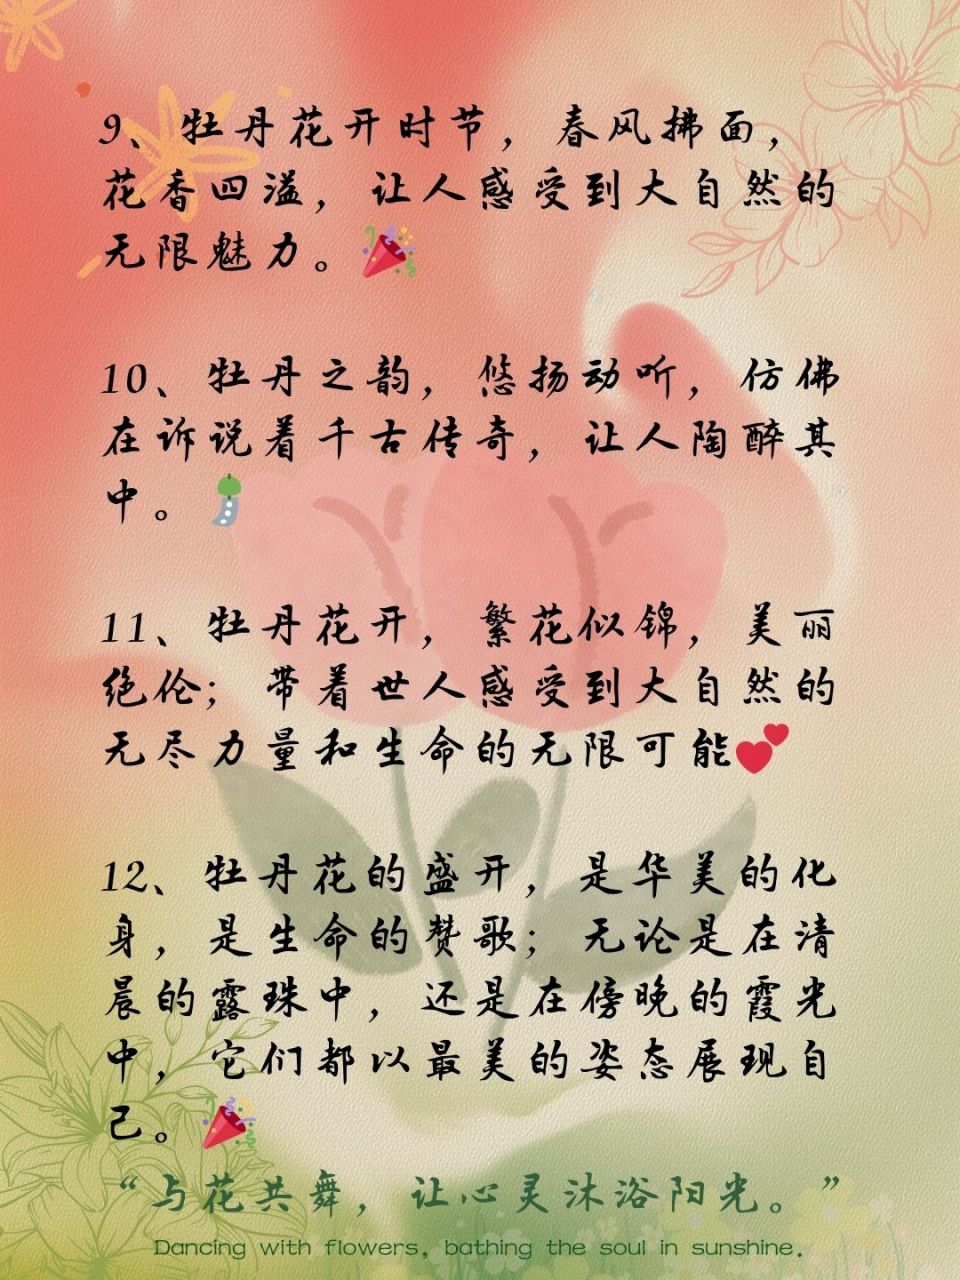 9、牡丹花开时节，春风拂面，
花香四溢，让人感受到大自然的
无限魅力。🎉
10、牡丹之韵，悠扬动听，仿佛
在诉说着千古传奇，让人陶醉其
中。🎐
11、牡丹花开，繁花似锦，美丽
绝伦；带着世人感受到大自然的
无尽力量和生命的无限可能💕
12、牡丹花的盛开，是华美的化
身，是生命的赞歌；无论是在清
晨的露珠中，还是在傍晚的霞光
中，它们都以最美的姿态展现自
己。🎉
“与花共舞，让心灵沐浴阳光。”
Dancing with flowers, bathing the soul in sunshine.